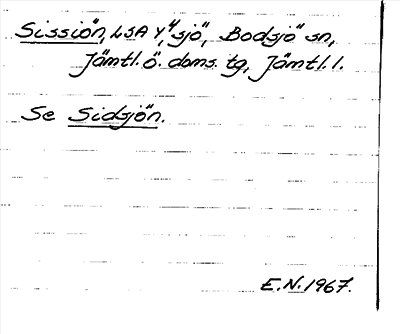 Sissiön, LSA Y4, sjö, Bodsjö sn,
Jämtl. ö. doms. tg, Jämtl. l.
Se Sidsjön.
E.N. 1967.